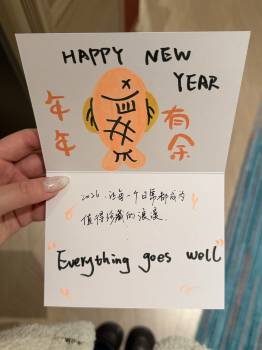 HAPPY NEW
YEAR
年年
有余
2026.让每一个日常都成为
值得珍藏的浪漫.
"Everything goes well"